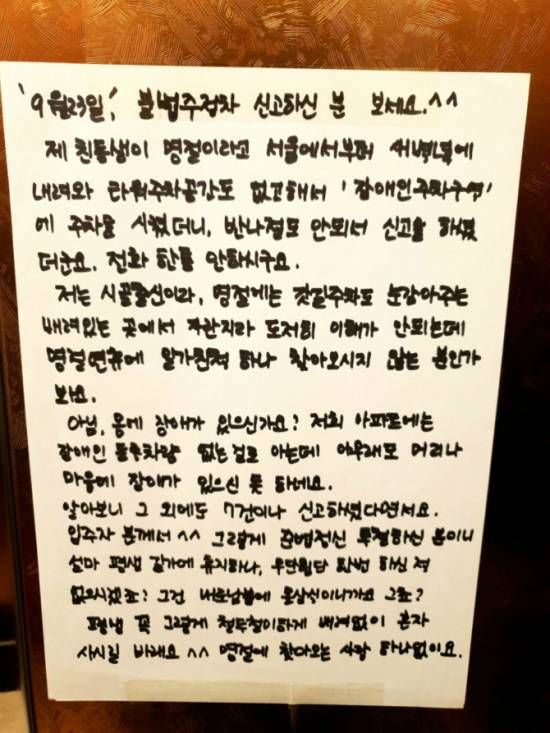 '9월23일', 불법주정차 신고하신 분 보세요.^^
제 친동생이 명절이라고 서울에서부터 새벽녘에
내려와 타워주차공간도 없고해서 '장애인주차구역'
에 주차를 시켰더니, 반나절도 안되서 신고를 하셨
더군요. 전화 한통 안하시구요.
저는 시골출신이라, 명절에는 갓길주차도 눈감아주는
배려있는 곳에서 자란지라 도저히 이해가 안되는데
명절연휴에 일가친척 하나 찾아오시지 않는 분인가
봐요.
아님, 몸에 장애가 있으신가요? 저희 아파트에는
장애인 등록차량 없는걸로 아는데 아무래도 머리나
마음에 장애가 있으신 듯 하네요.
알아보니 그 외에도 7건이나 신고하셨다면서요.
입주자 분께서 ^^ 그렇게 준법정신 투철하신 분이니
설마 평생 길가에 휴지하나, 무단횡단 한번 하신 적
없으시겠죠? 그건 내로남불에 몰상식이니까요 그쵸?
평생 꼭 그렇게 철두철미하게 배려없이 혼자
사시길 바래요 ^^ 명절에 찾아오는 사람 하나없이요.